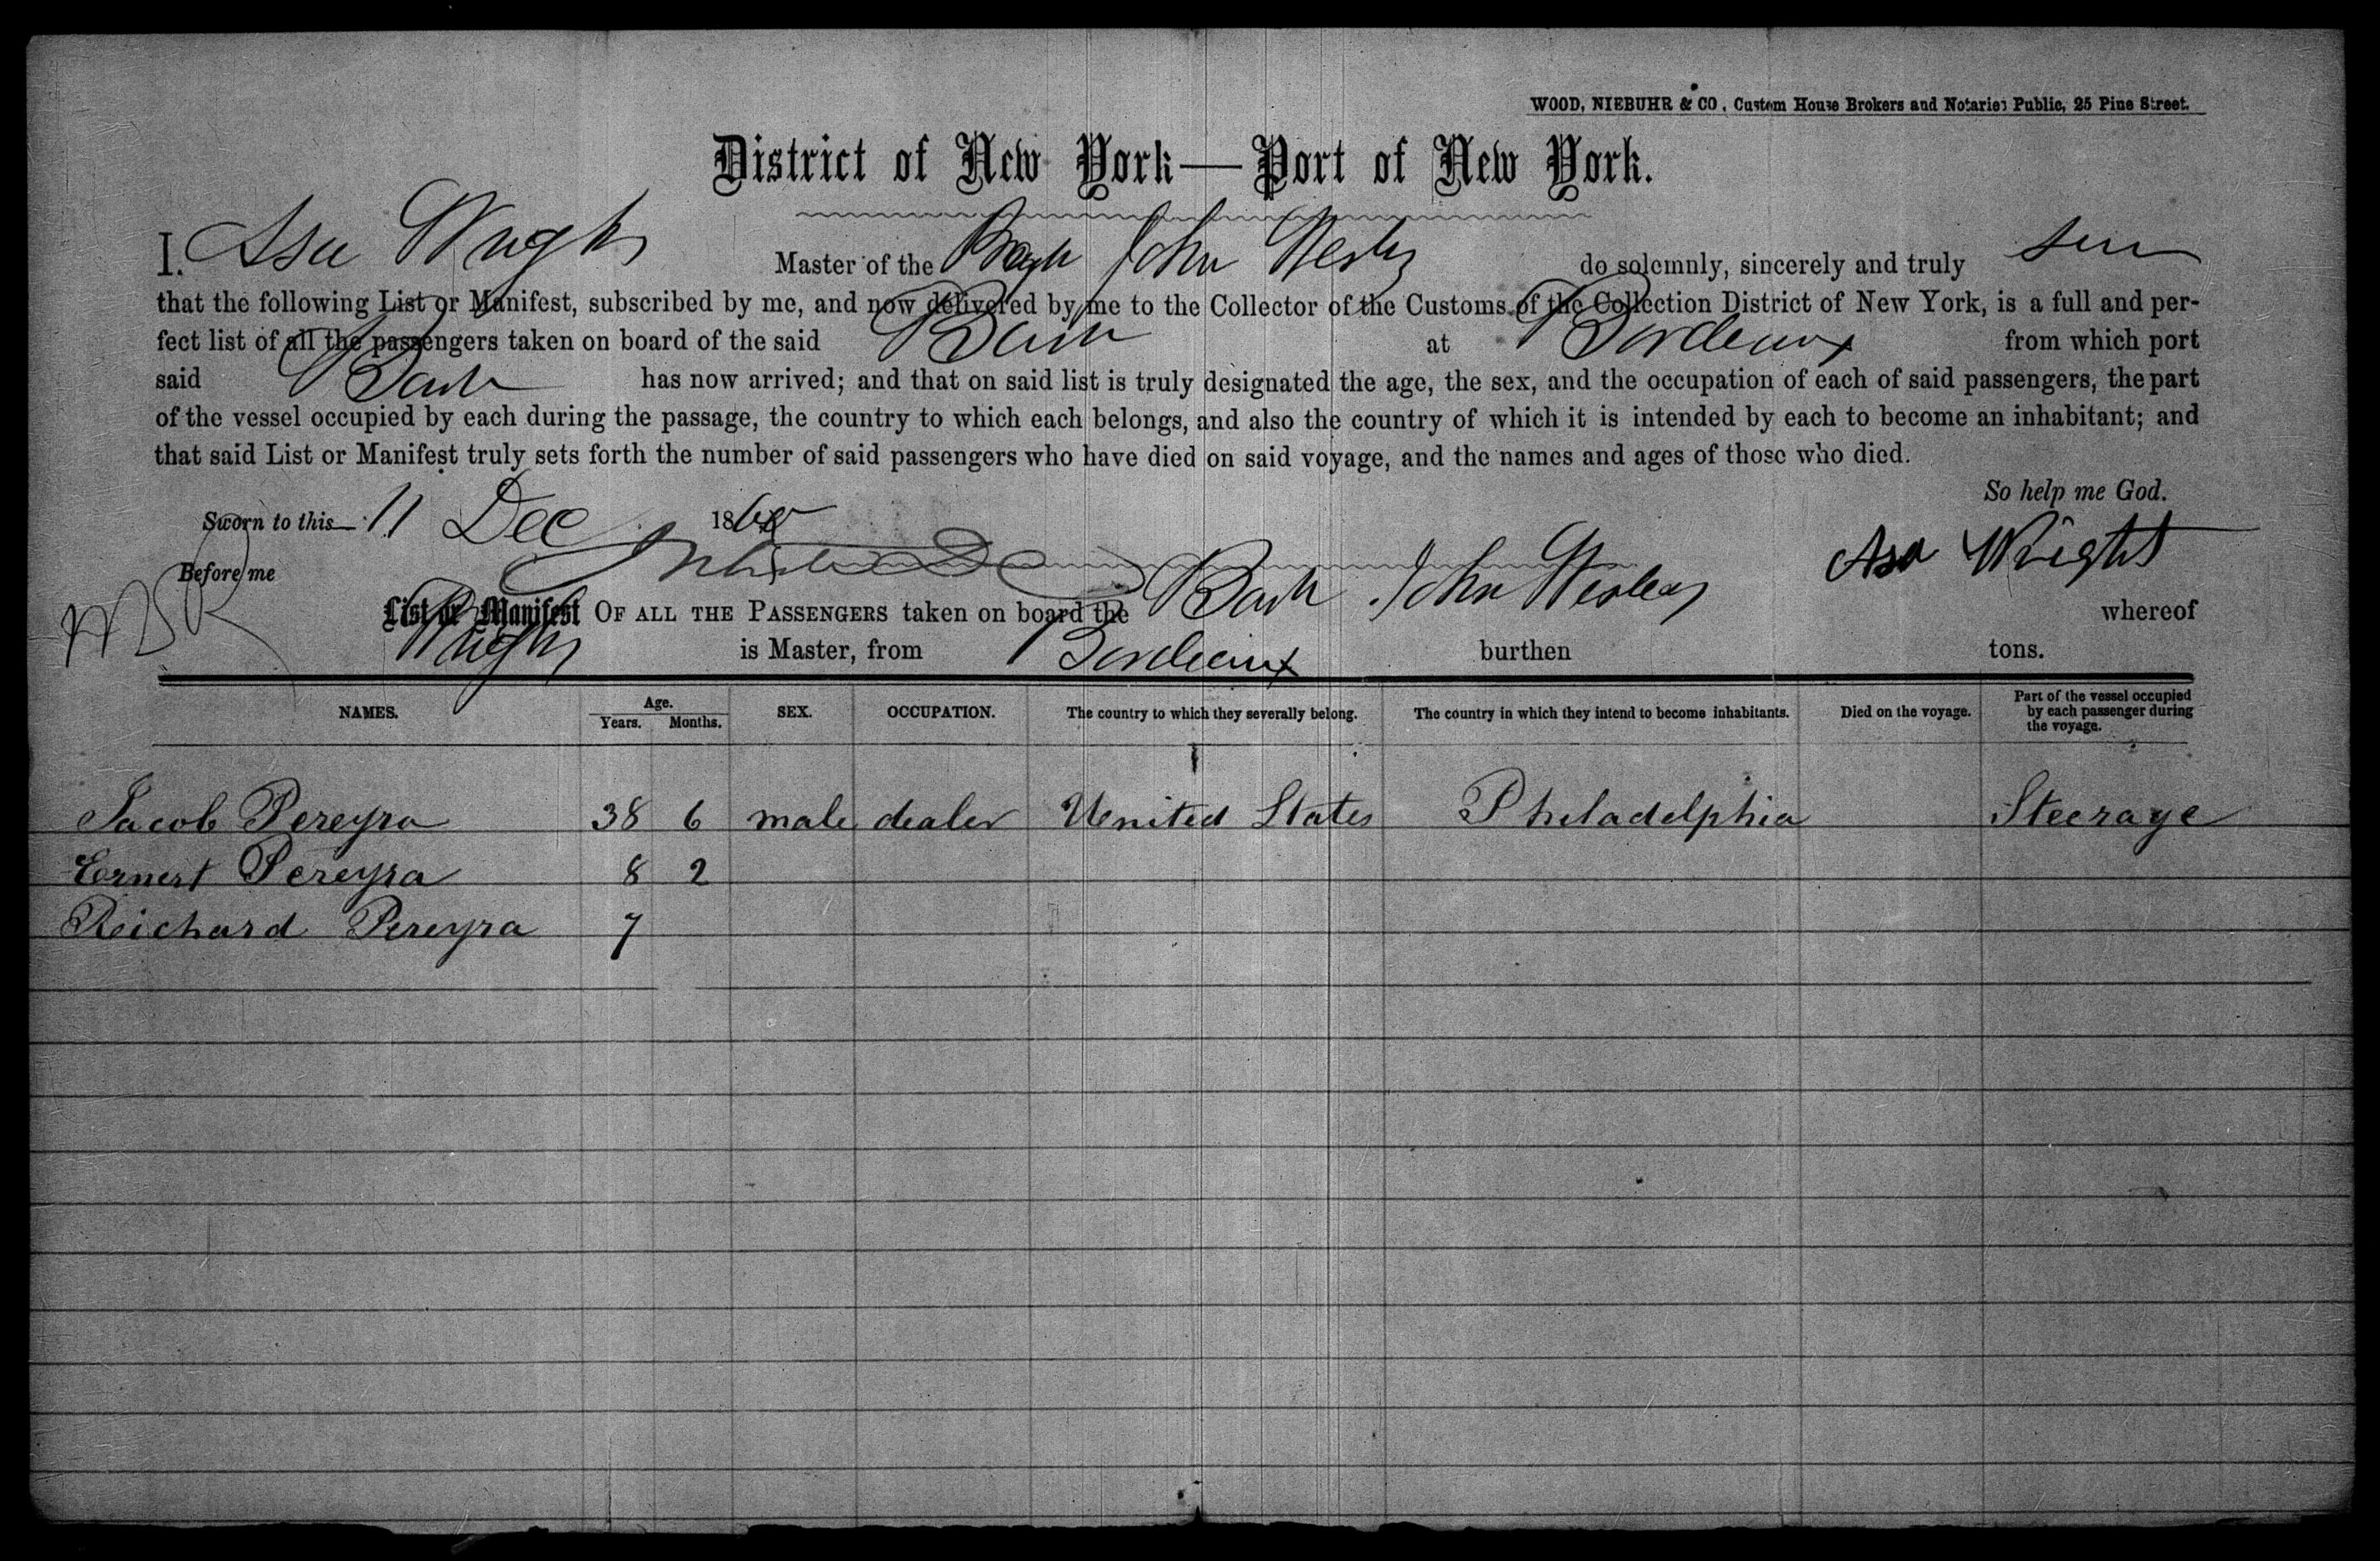 WOOD, NIEBUHR & CO, Custom House Brokers and Notaries Public, 25 Pine Street.
District of New York—Port of New York.
I. Asa Wright Master of the John Wesley do solemnly, sincerely and truly
that the following List or Manifest, subscribed by me, and now delivered by me to the Collector of the Customs of the Collection District of New York, is a full and per-
fect list of all the passengers taken on board of the said Bark at Bordeaux from which port
said Bark has now arrived; and that on said list is truly designated the age, the sex, and the occupation of each of said passengers, the part
of the vessel occupied by each during the passage, the country to which each belongs, and also the country of which it is intended by each to become an inhabitant; and
that said List or Manifest truly sets forth the number of said passengers who have died on said voyage, and the names and ages of those who died.
So help me God.
Sworn to this 11 Dec 186
Before me Asa Wright
List or Manifest OF ALL THE PASSENGERS taken on board the Bark John Wesley whereof
Wright is Master, from Bordeaux burthen tons.
NAMES. Age. Years. Months. SEX. OCCUPATION. The country to which they severally belong. The country in which they intend to become inhabitants. Died on the voyage. Part of the vessel occupied by each passenger during the voyage.
Jacob Pereyra 38 6 male dealer Uenited States Philadelphia Steerage
Ernest Pereyra 8 2
Reichard Pereyra 7